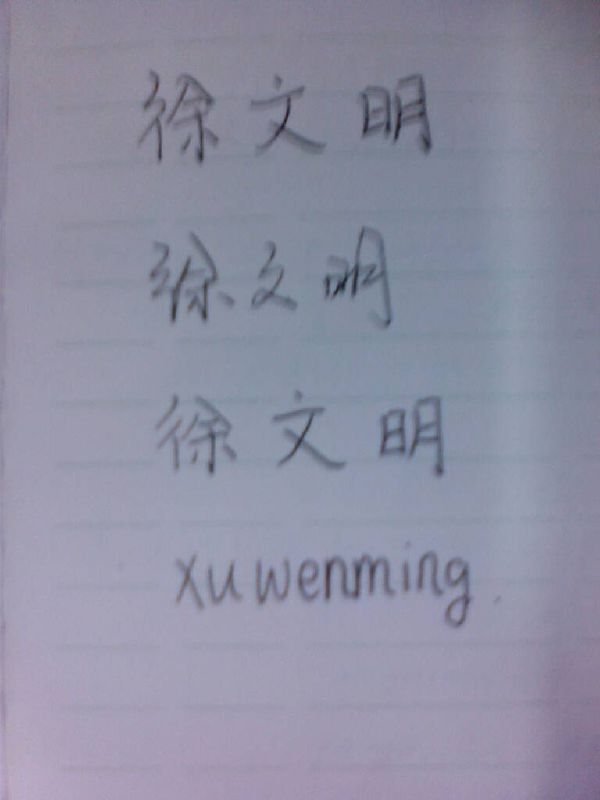 徐文明
徐文明
徐文明
xuwenming.